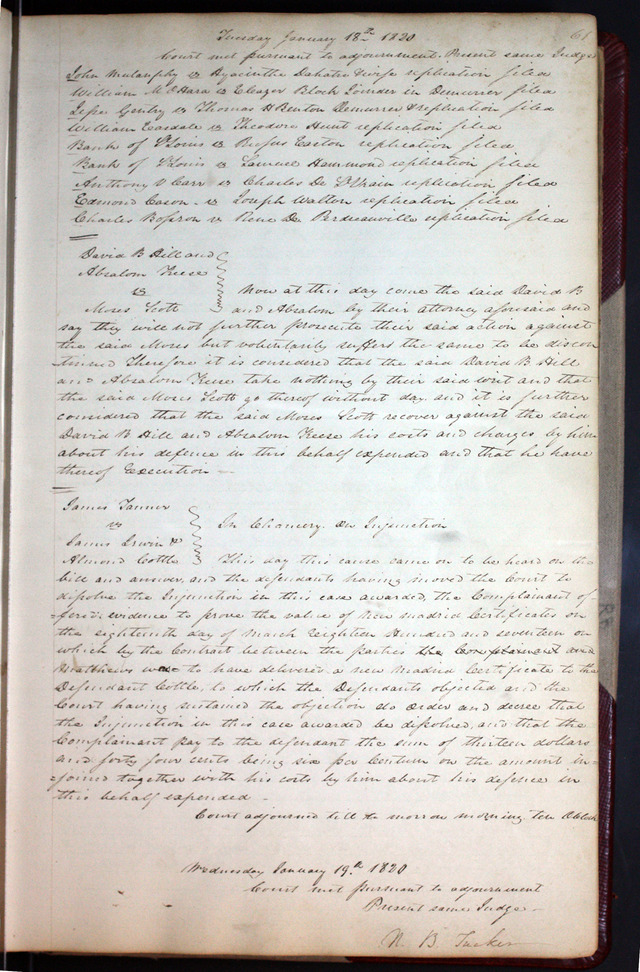 61
Tuesday January 18th 1820
Court met pursuant to adjournment. Present same Judge
John Mulanphy vs Hyacinthe Dahatre replication filed
William M OHara vs Eleazer Block Joinder in Demurrer filed
Jesse Gentry vs Thomas H Benton Demurrer & replication filed
William Easdale vs Theodore Hunt replication filed
Bank of St Louis vs Rufus Easton replication filed
Bank of St Louis vs Samuel Hammond replication filed
Anthony V Carr vs Charles De St Vrain replication filed
Edmond Cason vs Joseph Walton replication filed
Charles Bosseron vs Rene D replication filed
David B Hill and
Absalom Keese
vs Now at this day come the said David B
Moses Scott and Absalom by their attorney aforesaid and
say they will not further prosecute their said action against
the said Moses but voluntarily suffers the same to be discon
tinued Therefore it is considered that the said David B Hill
and Absalom Keese take nothing by their said writ and that
the said Moses Scott go thereof without day and it is further
considered that the said Moses Scott recover against the said
David B Hill and Absalom Keese his costs and charges by him
about his defence in this behalf expended and that he have
thereof Execution
James Tanner
vs In Chancery. On Injunction
James Irwin &
Almond Cottle This day this cause came on to be heard on the
bill and answer, and the defendants having moved the Court to
dissolve the Injunction in this case awarded, the Complainant of-
=fered evidence to prove the value of New madrid Certificates on
the eighteenth day of March Eighteen Hundred and seventeen on
which by the Contract between the parties the Complainant and
Matthews was to have delivered a new Madrid Certificate to the
Defendant Cottle, to which the Defendants objected and the
Court having sustained the objection do order and decree that
the Injunction in this case awarded be dissolved, and that the
Complainant pay to the defendant the sum of thirteen dollars
and forty four cents being six per Centum on the amount in-
=joined together with his costs by him about his defence in
this behalf expended
Court adjourned till to morrow morning ten Oclock
Wednesday January 19th 1820
Court met pursuant to adjournment
Present same Judge
N. B. Tucker